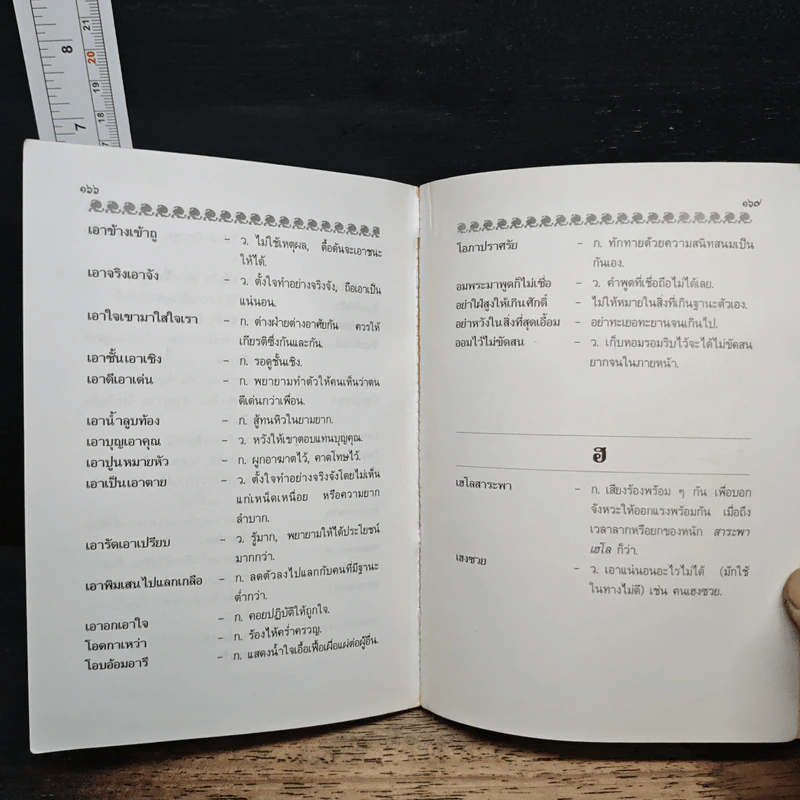 8
7
21
20
19
18
17
๑๖๖
เอาข้างเข้าถู – ว. ไม่ใช้เหตุผล, ดื้อดันจะเอาชนะ
ให้ได้.
เอาจริงเอาจัง – ว. ตั้งใจทำอย่างจริงจัง, ถือเอาเป็น
แน่นอน.
เอาใจเขามาใส่ใจเรา – ก. ต่างฝ่ายต่างอาศัยกัน ควรให้
เกียรติซึ่งกันและกัน.
เอาชั้นเอาเชิง – ก. รอดูชั้นเชิง.
เอาดีเอาเด่น – ก. พยายามทำตัวให้คนเห็นว่าตน
ดีเด่นกว่าเพื่อน.
เอาน้ำลูบท้อง – ก. สู้ทนหิวในยามยาก.
เอาบุญเอาคุณ – ว. หวังให้เขาตอบแทนบุญคุณ.
เอาปูนหมายหัว – ก. ผูกอาฆาตไว้, คาดโทษไว้.
เอาเป็นเอาตาย – ว. ตั้งใจทำอย่างจริงจังโดยไม่เห็น
แก่เหน็ดเหนื่อย หรือความยาก
ลำบาก.
เอารัดเอาเปรียบ – ว. รู้มาก, พยายามให้ได้ประโยชน์
มากกว่า.
เอาพิมเสนไปแลกเกลือ – ก. ลดตัวลงไปแลกกับคนที่มีฐานะ
ต่ำกว่า.
เอาอกเอาใจ – ก. คอยปฏิบัติให้ถูกใจ.
โอดกาเหว่า – ก. ร้องไห้คร่ำครวญ.
โอบอ้อมอารี – ก. แสดงน้ำใจเอื้อเฟื้อเผื่อแผ่ต่อผู้อื่น.
๑๖๗
โอภาปราศรัย – ก. ทักทายด้วยความสนิทสนมเป็น
กันเอง.
อมพระมาพูดก็ไม่เชื่อ – ว. คำพูดที่เชื่อถือไม่ได้เลย.
อย่าใฝ่สูงให้เกินศักดิ์ – ไม่ให้หมายในสิ่งที่เกินฐานะตัวเอง.
อย่าหวังในสิ่งที่สุดเอื้อม – อย่าทะเยอทะยานจนเกินไป.
ออมไว้ไม่ขัดสน – ว. เก็บหอมรอมริบไว้จะได้ไม่ขัดสน
ยากจนในภายหน้า.
ฮ
เฮโลสาระพา – ก. เสียงร้องพร้อม ๆ กัน เพื่อบอก
จังหวะให้ออกแรงพร้อมกัน เมื่อถึง
เวลาลากหรือยกของหนัก สาระพา
เฮโล ก็ว่า.
เฮงซวย – ว. เอาแน่นอนอะไรไม่ได้ (มักใช้
ในทางไม่ดี) เช่น คนเฮงซวย.